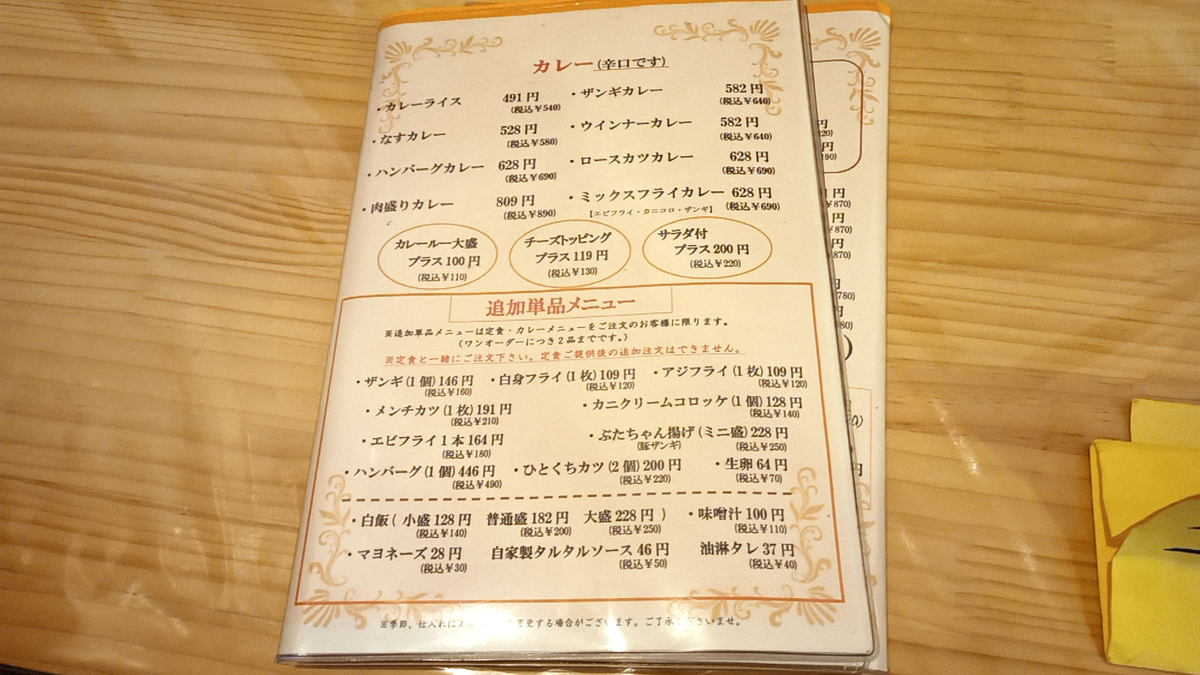 カレー(辛口です)
・カレーライス 491円 ・ザンギカレー 582円
(税込¥540) (税込¥640)
・なすカレー 528円 ・ウインナーカレー 582円
(税込¥580) (税込¥640)
・ハンバーグカレー 628円 ・ロースカツカレー 628円
(税込¥690) (税込¥690)
・肉盛りカレー 809円 ・ミックスフライカレー 628円
(税込¥890) 【エビフライ・カニコロ・ザンギ】 (税込¥690)
カレールー大盛
プラス100円
(税込¥110)
チーズトッピング
プラス119円
(税込¥130)
サラダ付
プラス200円
(税込¥220)
追加単品メニュー
※追加単品メニューは定食・カレーメニューをご注文のお客様に限ります。
(ワンオーダーにつき2品までです。)
※定食と一緒にご注文下さい。定食ご提供後の追加注文はできません。
・ザンギ(1個)146円 ・白身フライ(1枚)109円 ・アジフライ(1枚)109円
(税込¥160) (税込¥120) (税込¥120)
・メンチカツ(1枚)191円 ・カニクリームコロッケ(1個)128円
(税込¥210) (税込¥140)
・エビフライ1本164円 ・ぶたちゃん揚げ(ミニ盛)228円
(税込¥180) (豚ザンギ) (税込¥250)
・ハンバーグ(1個)446円 ・ひとくちカツ(2個)200円 ・生卵64円
(税込¥490) (税込¥220) (税込¥70)
・白飯( 小盛128円 普通盛182円 大盛228円 ) ・味噌汁100円
(税込¥140) (税込¥200) (税込¥250) (税込¥110)
・マヨネーズ28円 自家製タルタルソース46円 油淋タレ37円
(税込¥30) (税込¥50) (税込¥40)
※季節、仕入れによ 変更する場合がございます。ご了承くださいませ。